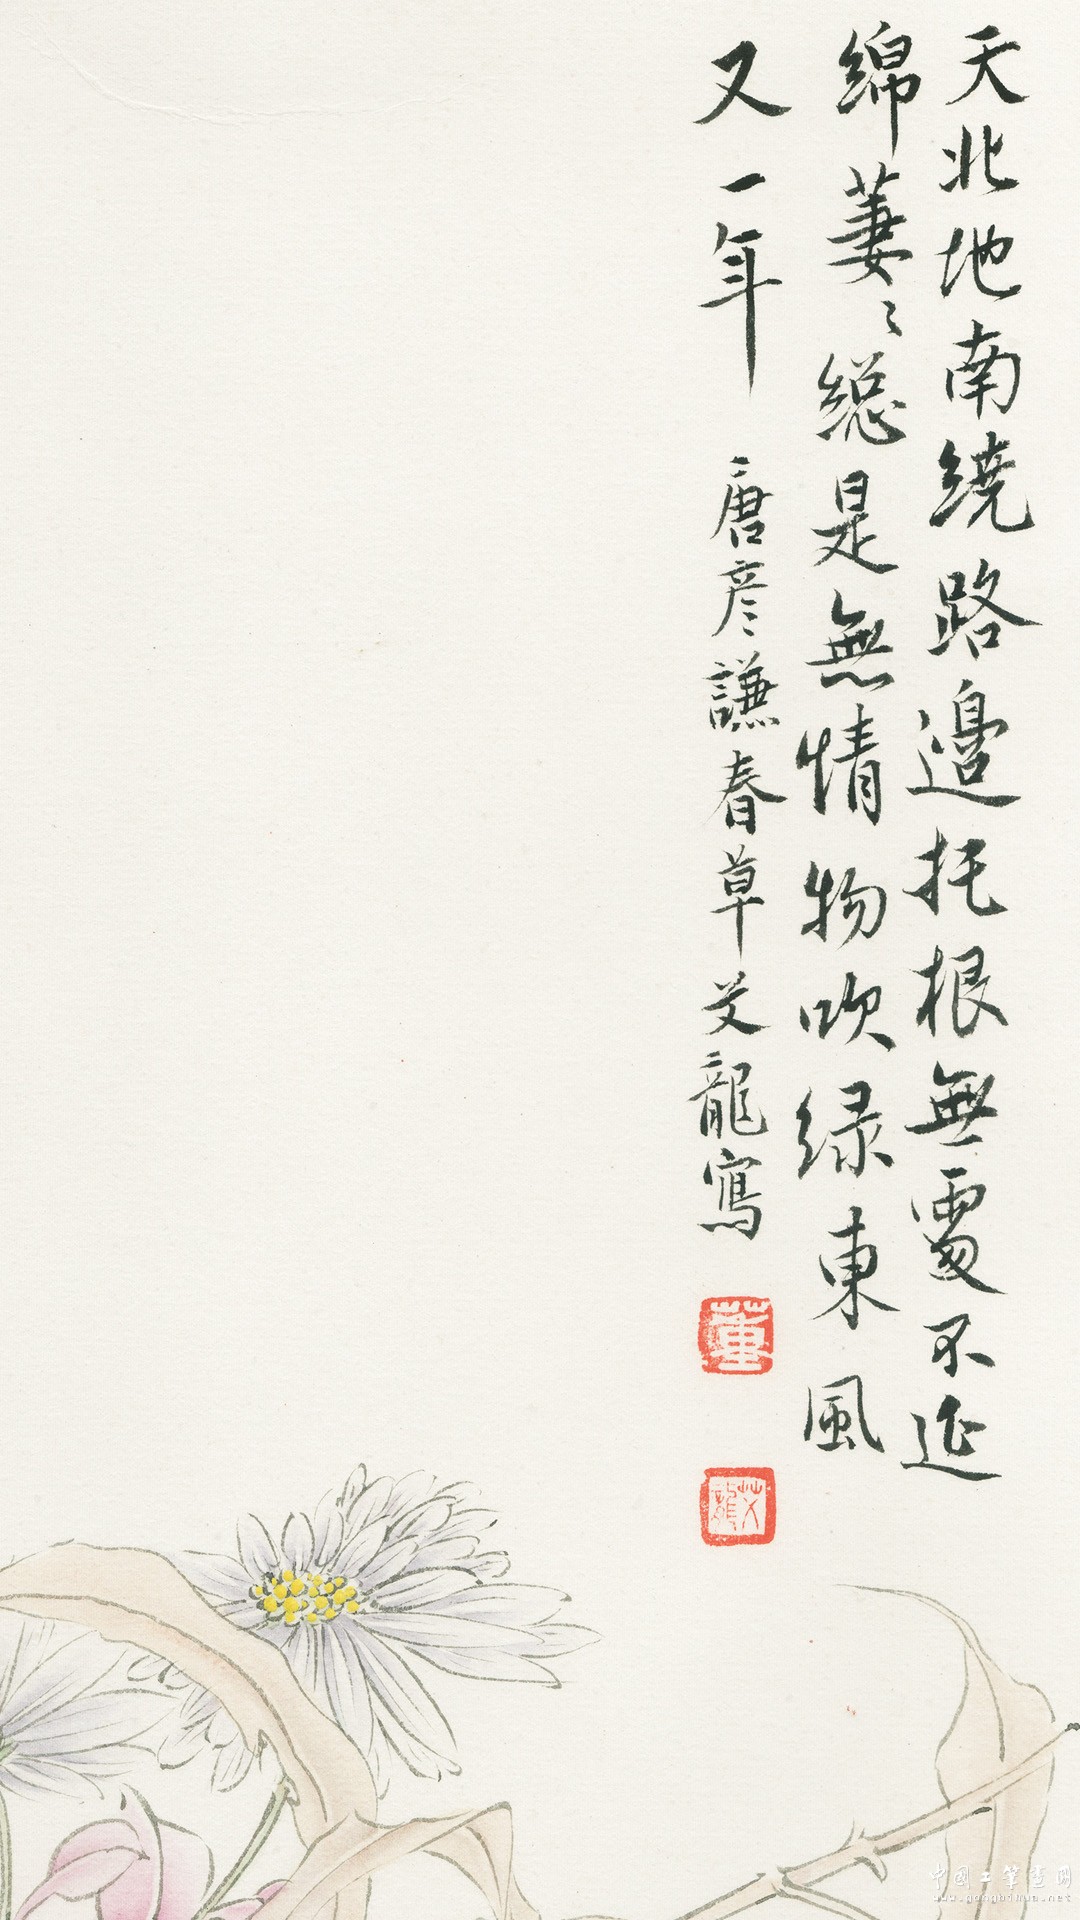 天北地南繞路邊托根無處不延
綿萋〻總是無情物吹綠東風
又一年 唐彦謙春草艾龍寫
董
艾龍
中國工筆畫網
www.gongbihua.net